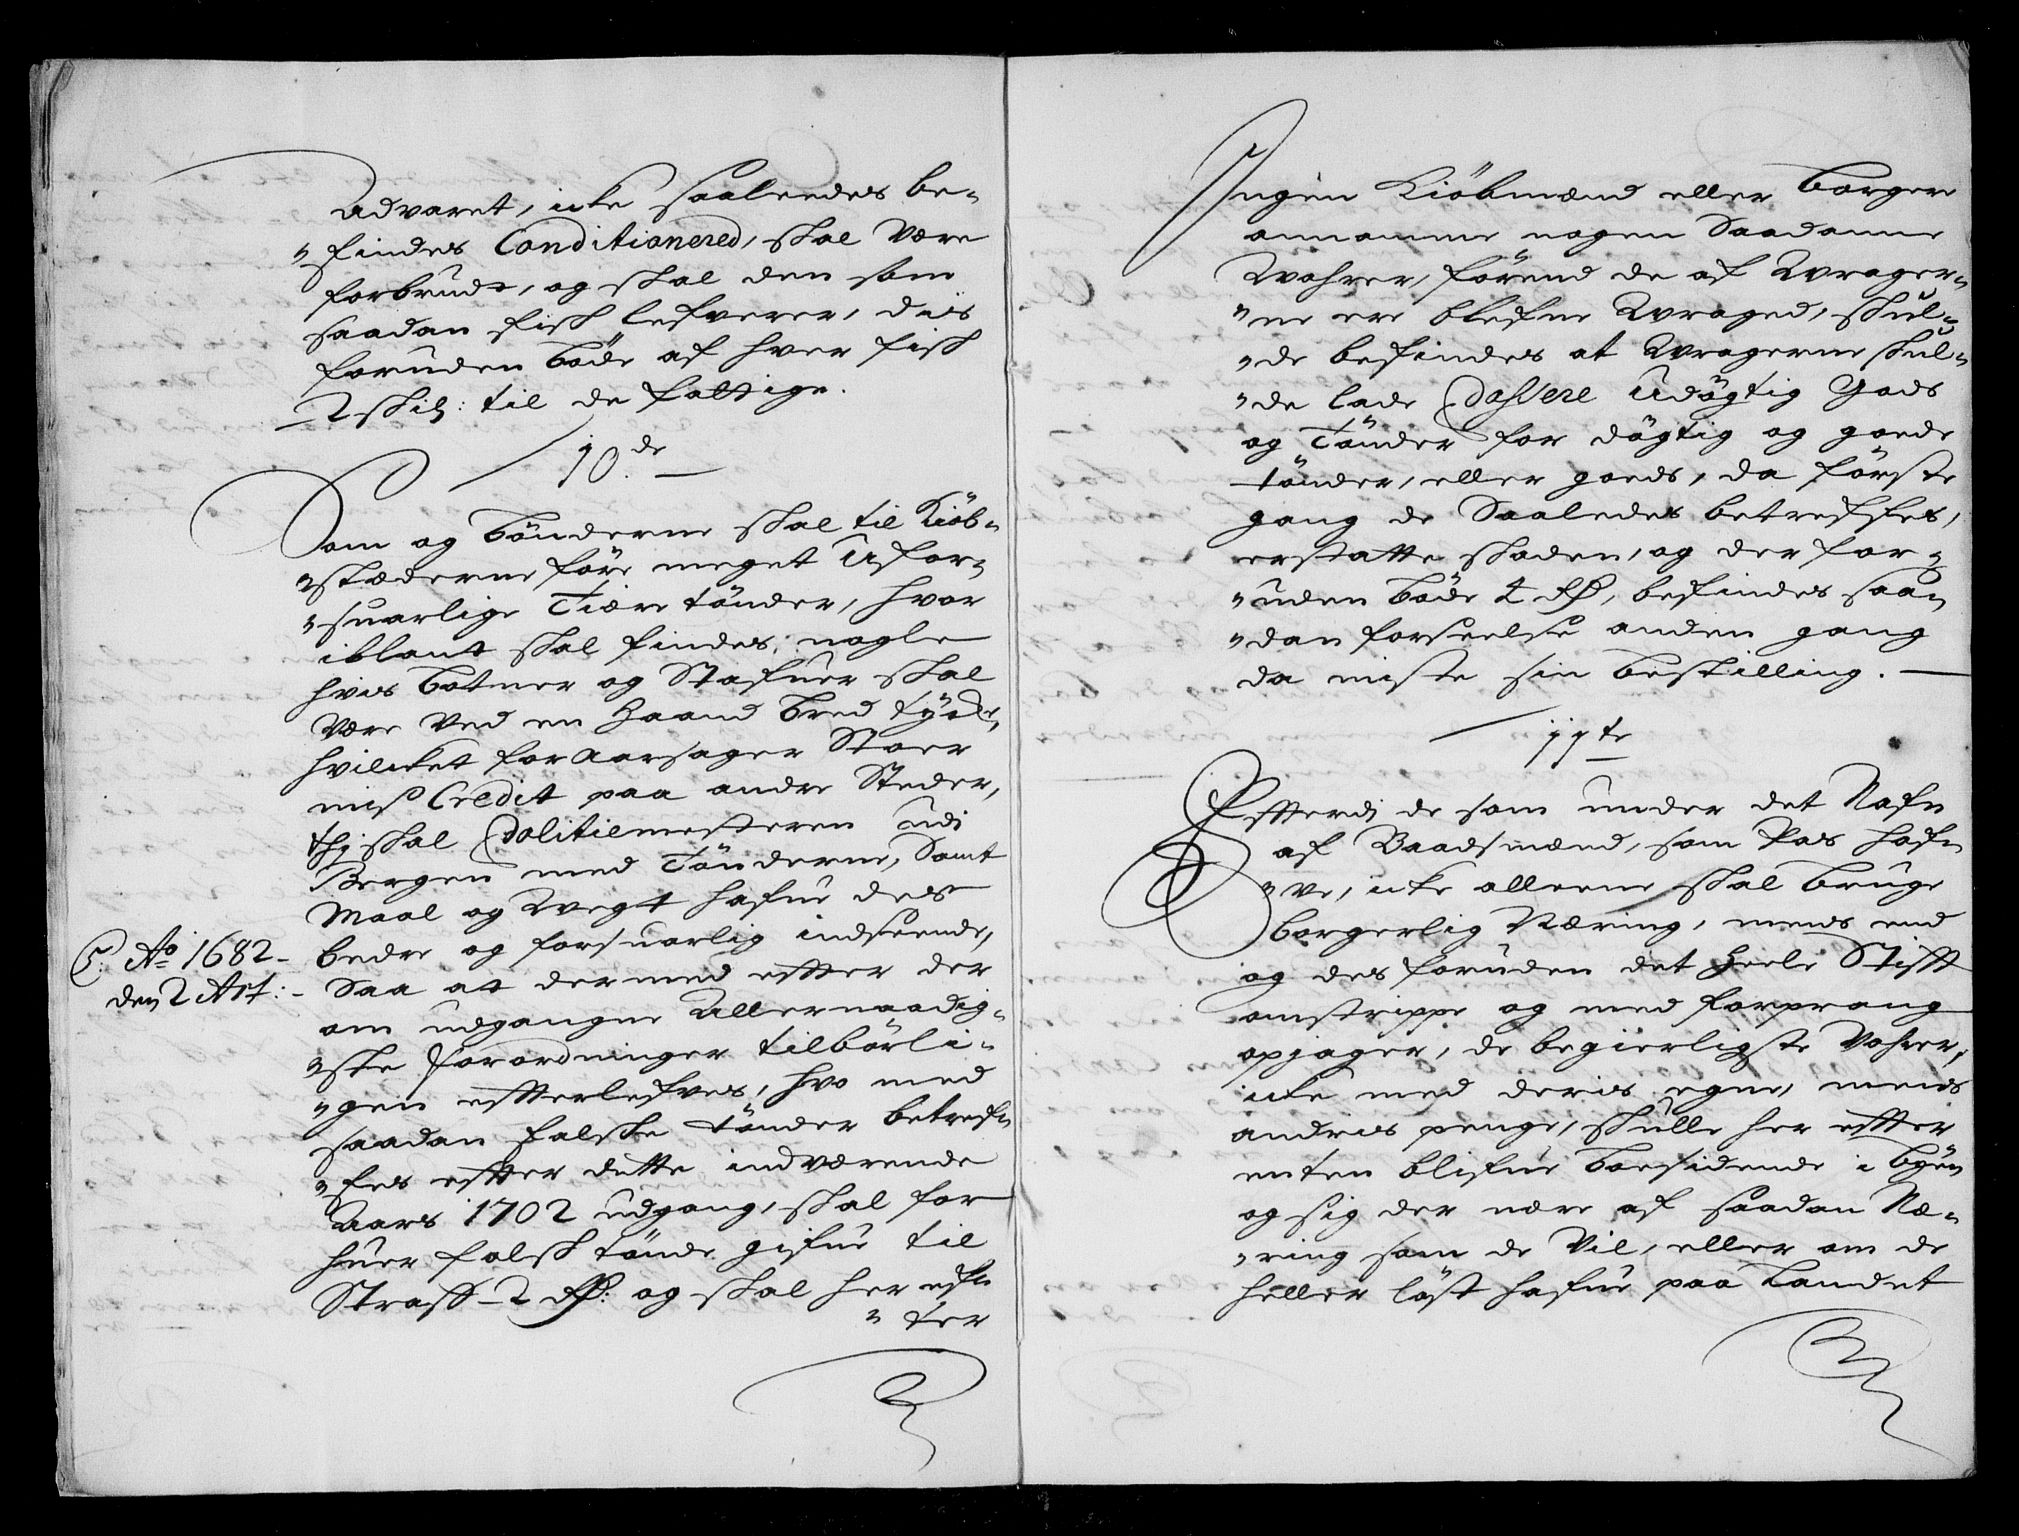 advaret, icke saaleedes be-
"findes Conditionered, skal Være
forbrudt, og skal den som
saadan fisk lefverer, dis
foruden böde af hver fisk
2 skil: til de fattige.
10.de
Som og bönderne skal til Kiöb-
"stæderne före meget Ufor-
"suarlige Tiære tönder, hvor
iblant skal findes, nogle
hvis botner og Stafuer skal
være ved en Haand bred tyck,
hvilcket foraarsager Stoer
mis Credit paa andre Steder,
thj skal Politiemesteren udi
Bergen med Tönderne, Samt
Maal og Wegt hafue des
bedre og forsuarlig indseende,
Saa at dermed efter der
om udgangne Allernaadig-
"ste forordninger tilbörli-
"gen efterlefves, hvo med
saadan falske tönder betref-
"fes efter dette indværende
Aars 1702 udgang, skal for
huer falsk tönde gifue til
Straff 2 Rd: og skal her ef-
"ter
C: Ao 1682
den 2 Art:
Ingen Kiöbmænd eller borgere
annamme nogen Saadanne
Wahrer, förend de af Wrager-
"ne ere blefne Wraged, skul-
"de befindes at Wragerne skul-
"de lade Passere Udögtig Gods
og Tönder for dögtig og goede
tönder, eller goeds, da förste
gang de Saaledes betreffes,
erstatte skaden, og der for-
"uden böde 4 Rd, befindes saa-
"dan forseelse anden gang
da miste sin bestilling.
11te
Efterdj de som under det Nafn
af Baadsmænd, som Pas haf-
"ve, icke alleene skal bruge
borgerlig Næring, mens end
og des foruden det Heele Stift
omstrippe og med forprang
opjager, de begierligste Vahrer,
icke med deris egne, mens
andris penge, skulle her efter
enten blifue boesidende i byen
og sig der nære af saadan Næ-
"ring som de Vil, eller om de
heller löst hafue paa Landet